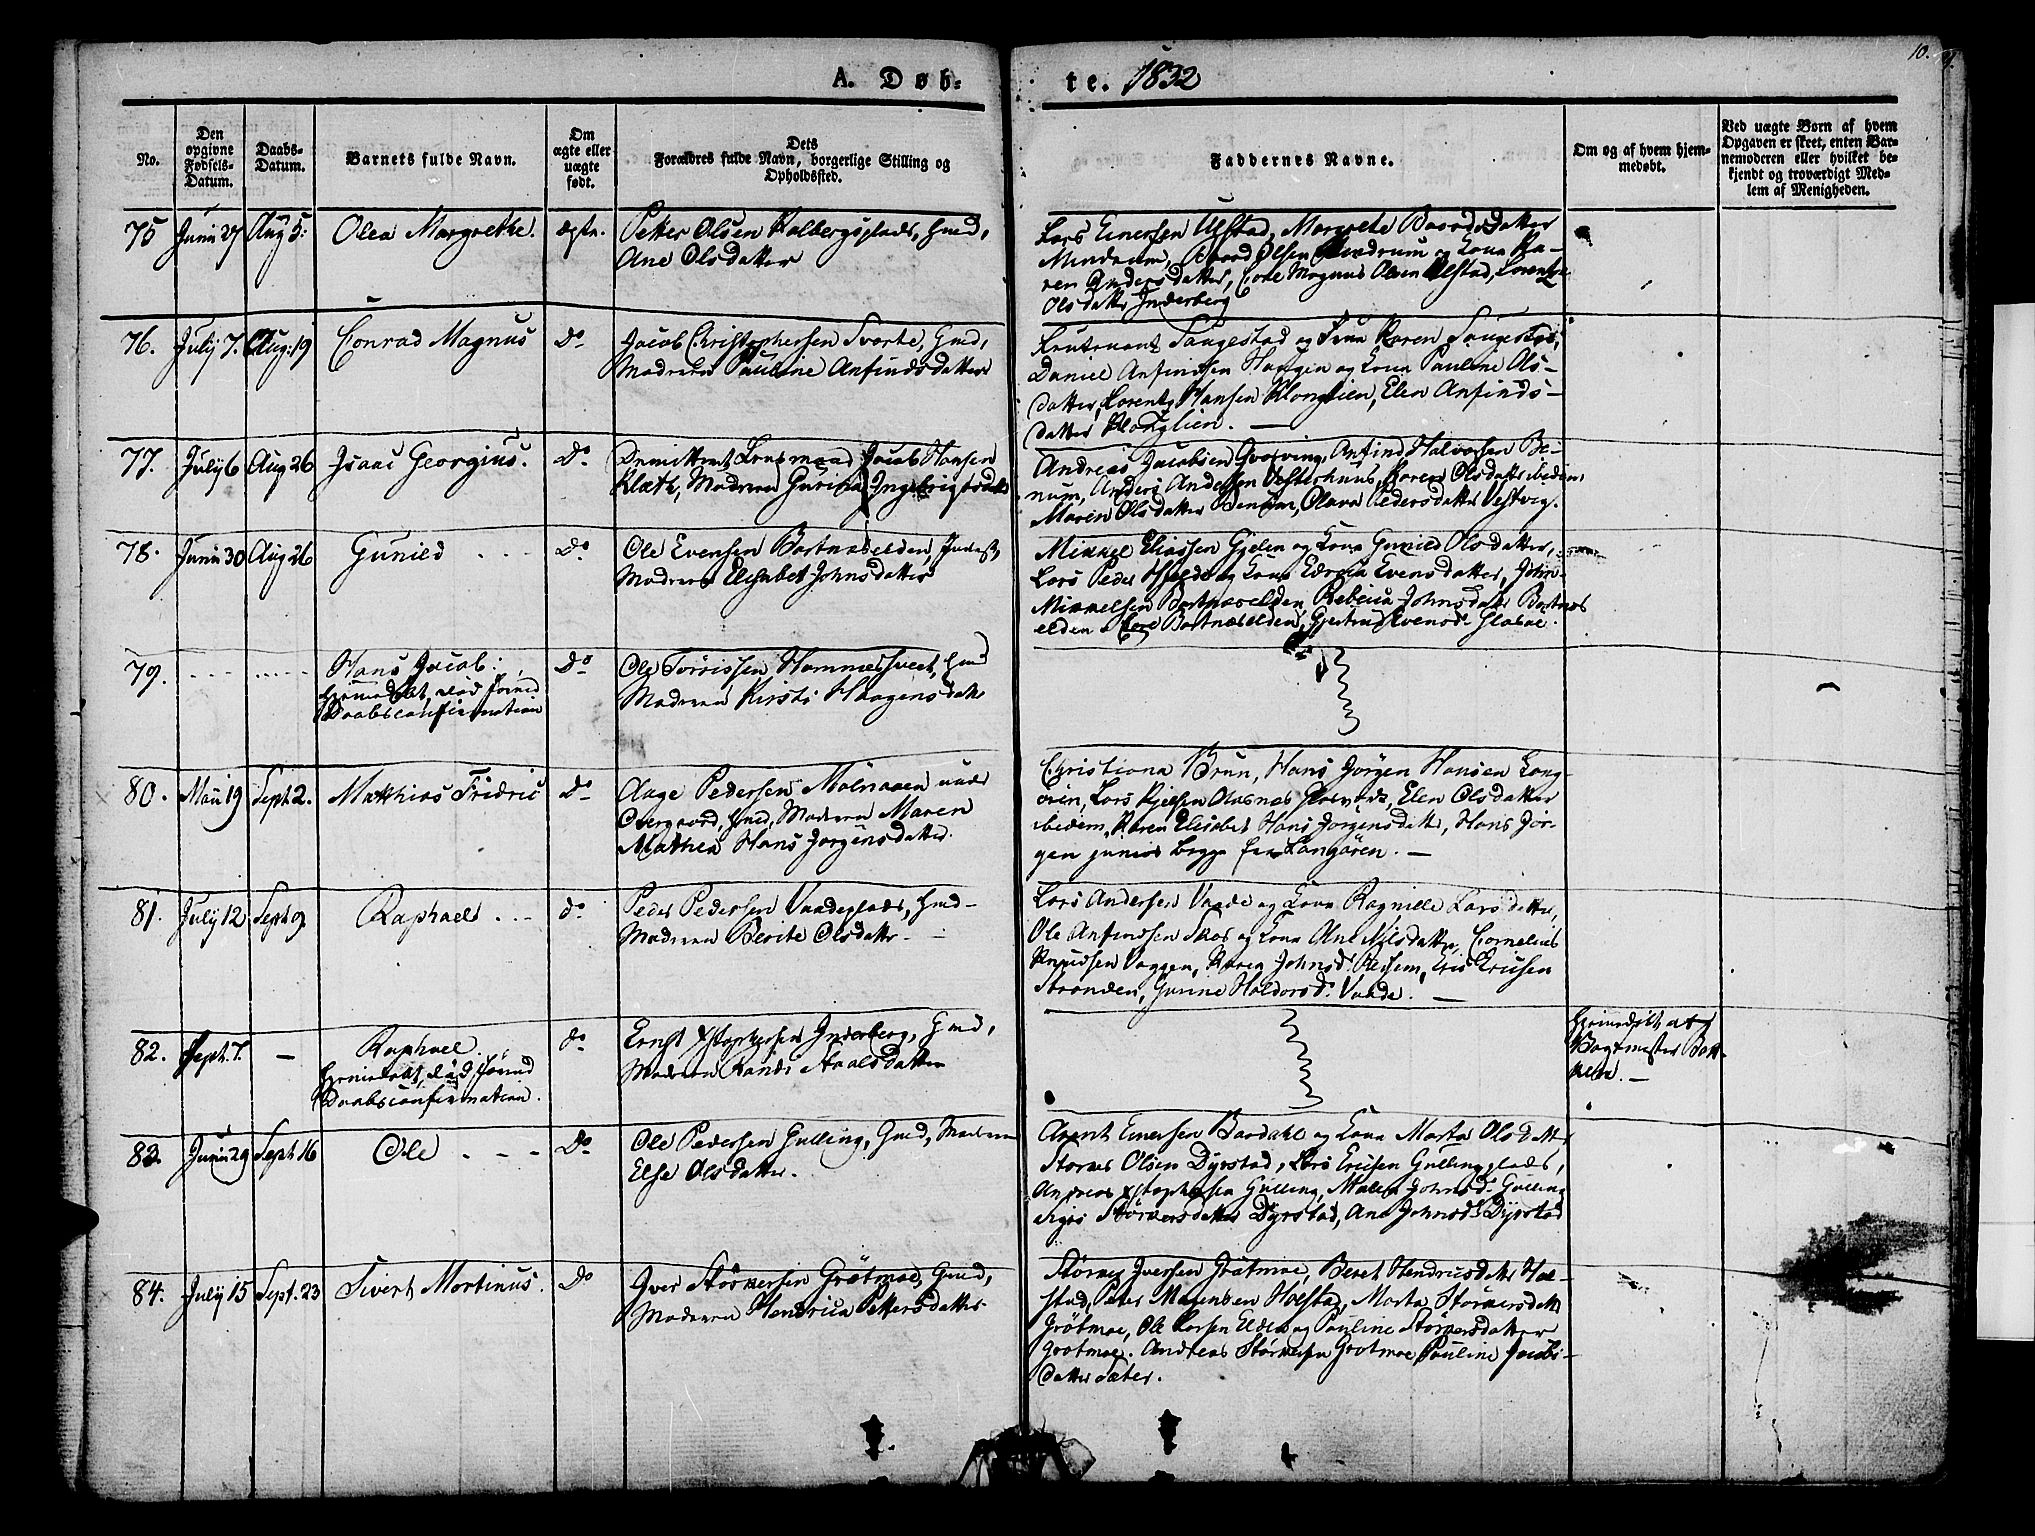 10.
A. Døb= te. 1832
No.
Den opgivne Fødsels-Datum.
Daabs-Datum.
Barnets fulde Navn.
Om ægte eller uægte født.
Dets Forældres fulde Navn, borgerlige Stilling og Opholdssted.
Faddernes Navne.
Om og af hvem hjem-medøbt.
Ved uægte Børn af hvem Opgaven er skeet, enten Bar-nemoderen eller hvilket be-kjendt og troværdigt Med-lem af Menigheden.
75 Junii 27 Aug 5. Olea Margrethe. ægte.
Petter Olsen Kalbergsplads, Hmd,
Ane Olsdatter
Lars Einersen Ulstad, Margrete Baardsdatter
Mindrum, Baard Olsen Mindrum og Kona Ka-
ren Andersdatter, Magnus Olsen Ulstad, Lorentze
Olsdatter Inderberg
76. July 7. Aug. 19 Conrad Magnus Do
Jacob Christophersen Svarte, Hmd,
Moderen Pauline Anfindsdatter
Lieutenant Saugestad og Frue Karen Saugestad,
Daniel Anfindsen Haugen og Kona Pauline Ols-
datter, Lorents Hansen Klonglien, Elen Anfinds-
datter Klonglien.
77. July 6 Aug 26 Isaac Georgius. Do
Dimitteret Jacob Hansen
Klæth, Moderen Gurina Ingebrigtsdatter
Andreas Jacobsen Qvarving, Anfind Halvorsen Be-
num, Anders Andersen Vesterhuus, Karen Olsdatter ibidem
Maren Olsdatter Benum, Olava Pedersdatter Vestvig.
78. Junii 30 Aug 26 Gunild - - - Do
Ole Evensen Bartnæselden, Inderst,
Moderen Elisabet Johnsdatter
Mikkel Eliassen Gjelen og Kona Gunild Olsdatter,
Lars Peder Hjelde og Kona Evensdatter, John
Mikkelsen Bartnæselden, Rebecca Johnsdatter Bartnæs
elden, Bartnæselden, Gjertrud Evensd.
79. - - - - - - - - - Hans Jacob: Do
hjemedøbt, död förend
Daabsconfirmation
Ole Torrissen Hammershveet, Hmd
Moderen Kirsti Haagensdatter
80. Maii 19 Sept 2. Matthias Fridric Do
Aage Pedersen Molnaaen under
Overgaard, Hmd, Moderen Maren
Mathea Hans Jørgensdatter.
Christiana Brun, Hans Jörgen Hansen Lang-
ören, Lars Kjelsen, Elen Olsdatter
ibidem, Karen Elisabet Hans Jorgensdatter, Hans Jör-
gen junior begge fra Langören. —
81. July 12 Sept 9. Raphael - - - do
Peder Pedersen Vaadeplads, Hmd -
Moderen Berite Olsdatter -
Lars Andersen Vaade og Kona Ragnille Larsdatter,
Ole Anfindsen Skos og Kona Ane Nilsdatter, Cornelius
Knudsen Vaggen, Karen Johnsd. Reissem, Eric Ericsen
Stranden, Gunne Haldorsd. Vaade. —
82. Sept. 7. — Raphael do
hjemedøbt, död förend
Daabsconfirmation.
Ernst Xstophersen Inderberg, Hmd,
Moderen Randi Paalsdatter
hjemedøbt af
Vagtmester
83. Junii 29 Sept 16 Ole - - - Do
Ole Pedersen Gulling, Hmd, Moderen
Else Olsdatter.
Arent Einersen Bardahl og Kona Marta Olsdatter
Storker Olsen Dyrstad, Lars Ericsen Gullingplads,
Andreas Xstophersen Gulling, Malen Johnsd. Gulling
Storkersdatter Dyrstad, Ane Johnsd. Dyrstad
84. July 15 Sept. 23 Sivert Martinus. Do
Iver Störkersen Grötmoe, Hmd,
Moderen Hendrica Pettersdatter.
Störker Iversen Grötmoe, Beret Hendricsdatter Hol-
stad, Peter Mogensen Holstad, Marta Störkersdatter
Grötmoe, Ole Larsen Elden og Pauline Storkersdatter
Grötmoe. Andreas Störkersen Grötmoe, Pauline Jacobs-
datter Sæter.